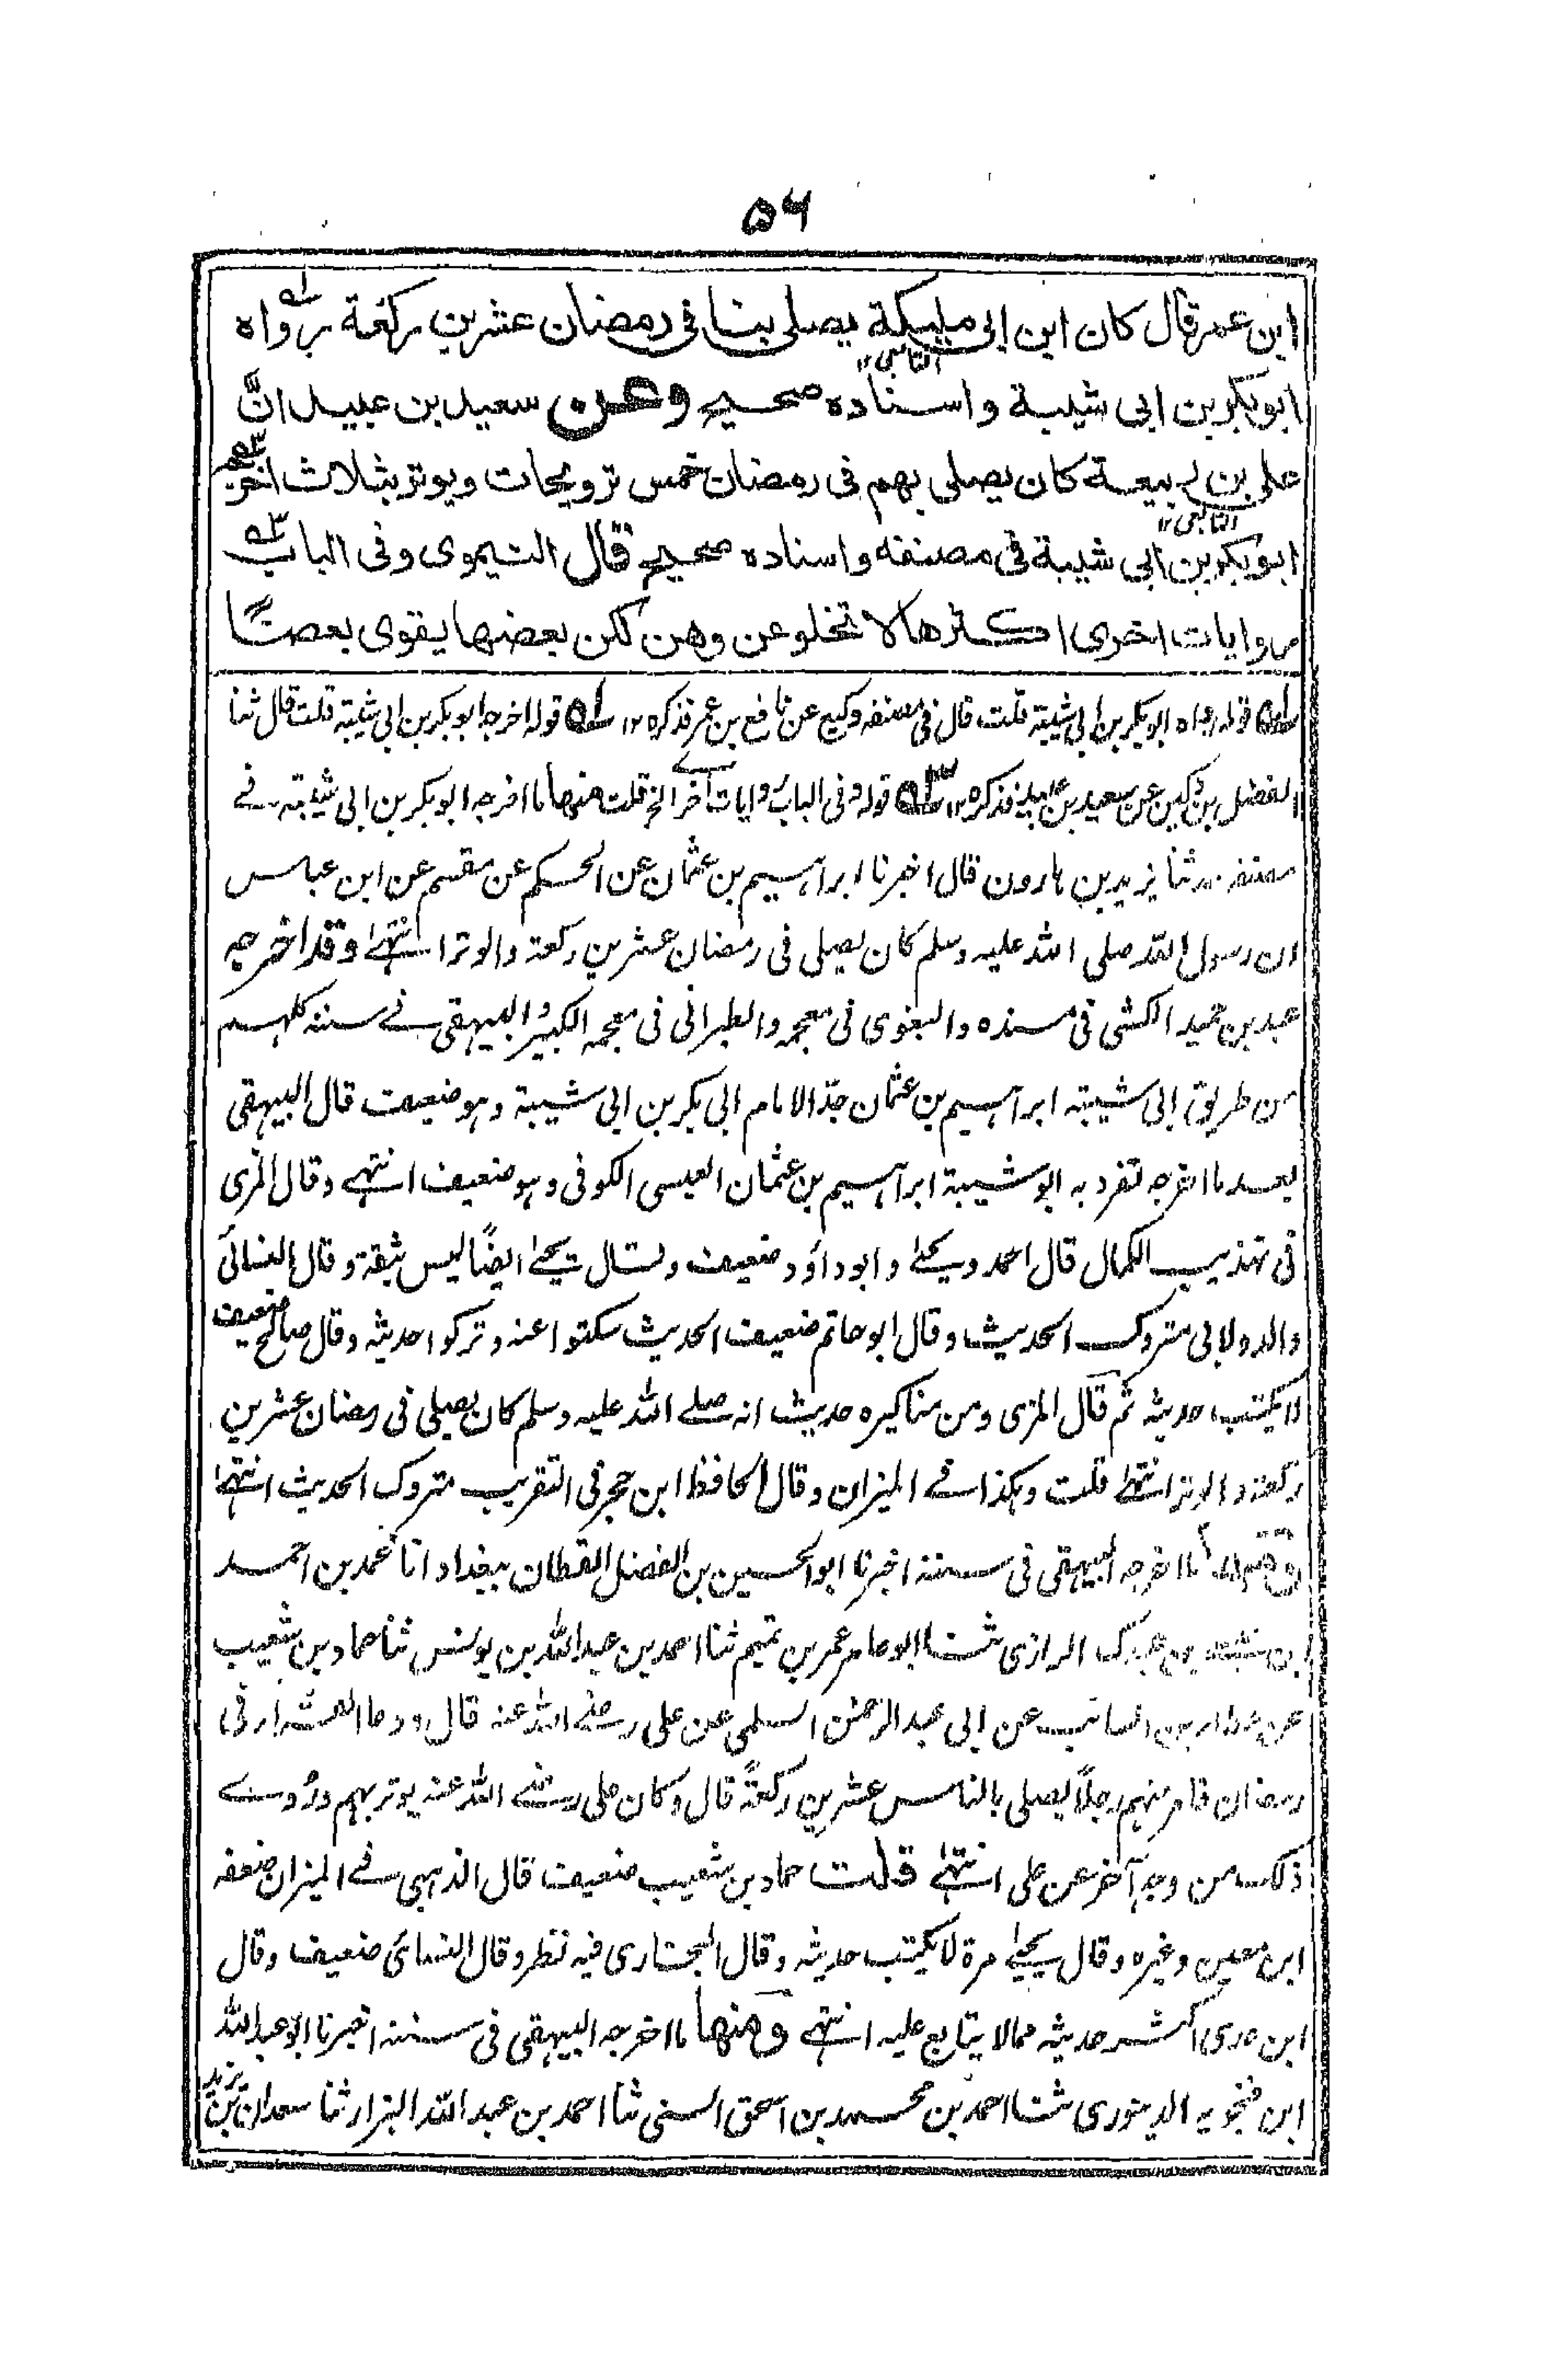 ۵۶
ابن عمر قال كان ابن ابى مليكة يصلى بنا فى رمضان عشرين ركعة رواه
التابعى ۱۲
ابو بكر بن ابى شيبة و اسناده صحيح وعن سعيد بن عبيد انّ
على بن ربيعة كان يصلى بهم فى رمضان خمس ترويحات ويوتر بثلاث اخرجه
التابعى ۱۲
ابو بكر بن ابى شيبة فى مصنفه واسناده صحيح قال النيموى وفى الباب
روايات اخرى اكثرها لا تخلو عن وهن لكن بعضها يقوى بعضًا
قوله رواه ابو بكر بن ابى شيبة قلت قال فى مصنفه وكيع عن نافع بن عمر فذكره ۱۲ قوله اخرجه ابو بكر بن ابى شيبة قلت قال ثنا
الفضل بن دكين عن سعيد بن عبيد فذكره ۱۲ قوله وفى الباب روايات آخر الخ قلت منها ما اخرجه ابو بكر بن ابى شيبة فے
مصنفه ثنا يزيد بن هارون قال اخبرنا ابراهيم بن عثمان عن الحكم عن مقسم عن ابن عباس
ان رسول الله صلى الله عليه وسلم كان يصلى فى رمضان عشرين ركعة والوتر انتهىٰ وقد اخرجه
عبد بن حميد الكشى فى مسنده والبغوى فى معجمه والطبرانى فى معجمه الكبير والبيهقى فے سننه كلهم
من طريق ابى شيبة ابراهيم بن عثمان جدّ الامام ابى بكر بن ابى شيبة وهو ضعيف قال البيهقى
بعد ما اخرجه تفرد به ابو شيبة ابراهيم بن عثمان العبسى الكوفى وهو ضعيف انتهے وقال المزى
فى تهذيب الكمال قال احمد ويحيٰے وابو داؤد ضعيف وقال يحيٰے ايضًا ليس بثقة وقال النسائى
والدولابى متروك الحديث وقال ابو حاتم ضعيف الحديث سكتوا عنه وتركوا حديثه وقال صالح ضعيف
لا يكتب حديثه ثم قال المزى ومن مناكيره حديث انه صلے الله عليه وسلم كان يصلى فى رمضان عشرين
ركعة والوتر انتهىٰ قلت وهكذا فے الميزان وقال الحافظ ابن حجر فى التقريب متروك الحديث انتهىٰ
ومنها ما اخرجه البيهقى فى سننه اخبرنا ابو الحسين بن الفضل القطان ببغداد انا محمد بن احمد
بن الرازى ثنا ابو عامر عمر بن تميم ثنا احمد بن عبد الله بن يونس ثنا حماد بن شعيب
عن عطاء بن السائب عن ابى عبد الرحمٰن السلمى عن على رضے الله عنه قال ودعا القراء فى
رمضان فامر منهم رجلاً يصلى بالناس عشرين ركعةً قال وكان على رضے الله عنه يوتر بهم وروے
ذلك من وجهٍ آخر عن على انتهٰے قلت حماد بن شعيب ضعيف قال الذهبى فے الميزان ضعفه
ابن معين وغيره وقال يحيٰے مرة لا يكتب حديثه وقال البخارى فيه نظر وقال النسائى ضعيف وقال
ابن عدى اكثر حديثه مما لا يتابع عليه انتهے ومنها ما اخرجه البيهقى فى سننه اخبرنا ابو عبد الله
ابن فنجويه الدينورى ثنا احمد بن محمد بن اسحق السنى ثنا احمد بن عبد الله البزار ثنا سعدان بن يزيد